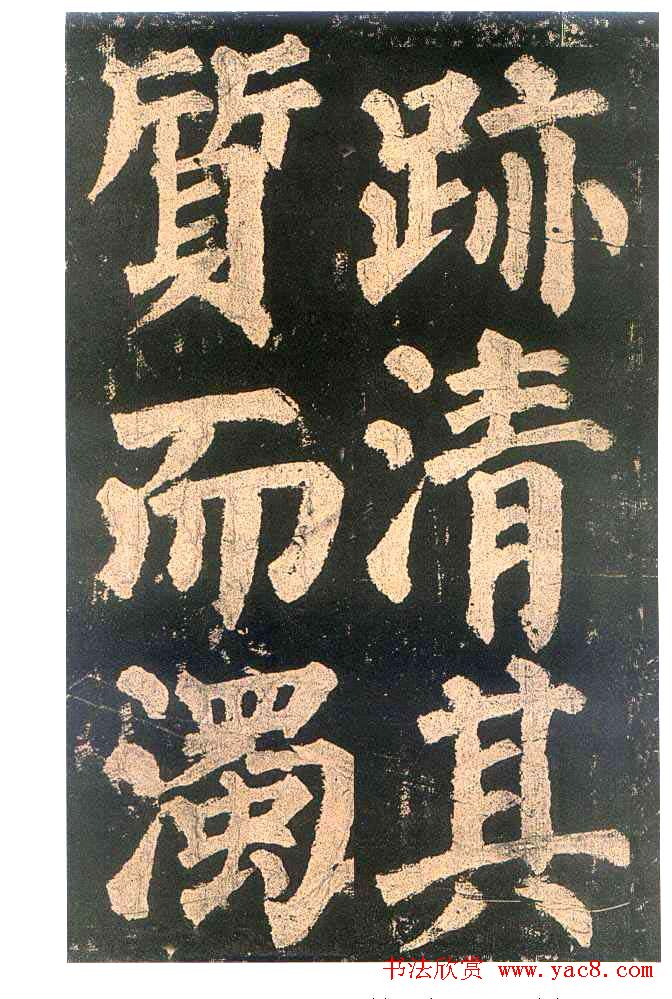 跡清其
質而濁
书法欣赏 www.yac8.com